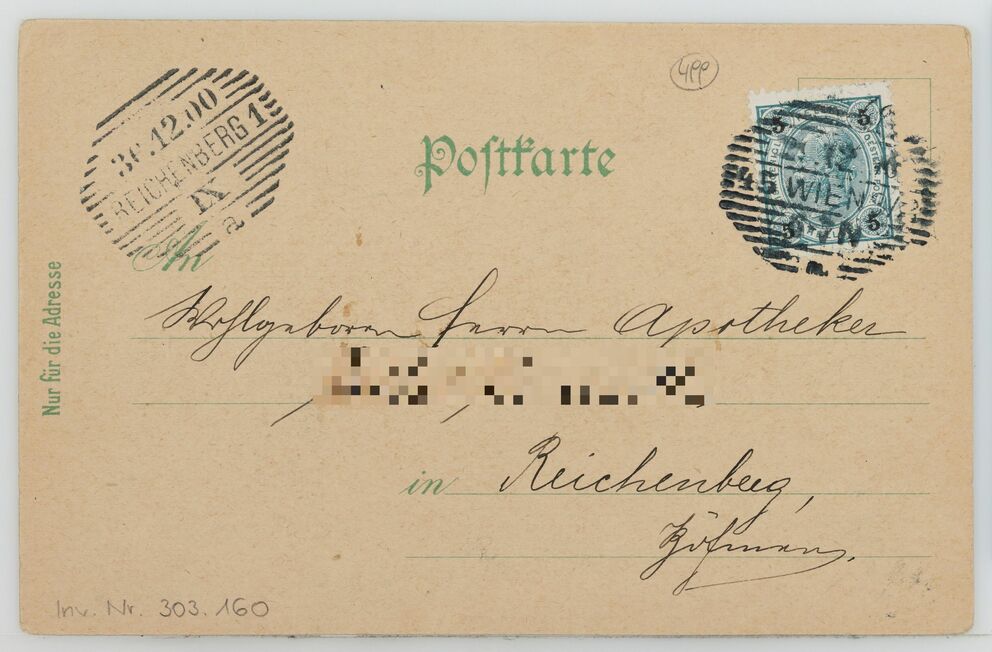 499
30.12.00
REICHENBERG 1
IX
a
Postkarte
5 5
12
45 WIEN
5 5
An
Wohlgeboren Herrn Apotheker
in Reichenberg,
Böhmen.
Nur für die Adresse
Inv. Nr. 303.160